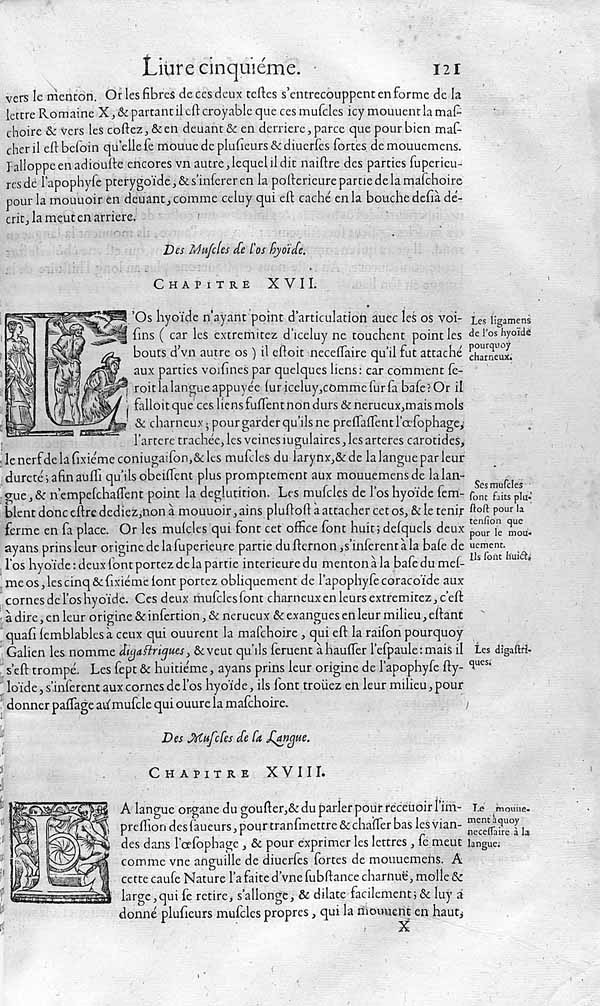 Liure cinquiéme. 121
vers le menton. Or les fibres de ces deux testes s'entrecouppent en forme de la
lettre Romaine X, & partant il est croyable que ces muscles icy mouuent la mas-
choire & vers les costez, & en deuant & en derriere, parce que pour bien mas-
cher il est besoin qu'elle se mouue de plusieurs & diuerses sortes de mouuemens.
Falloppe en adiouste encores vn autre, lequel il dit naistre des parties superieu-
res de l'apophyse pterygoïde, & s'inserer en la posterieure partie de la maschoire
pour la mouuoir en deuant, comme celuy qui est caché en la bouche desià dé-
crit, la meut en arriere.
Des Muscles de l'os hyoïde.
CHAPITRE XVII.
L'Os hyoïde n'ayant point d'articulation auec les os voi-
sins ( car les extremitez d'iceluy ne touchent point les
bouts d'vn autre os ) il estoit necessaire qu'il fut attaché
aux parties voisines par quelques liens: car comment se-
roit la langue appuyée sur iceluy, comme sur sa base? Or il
falloit que ces liens fussent non durs & nerueux, mais mols
& charneux; pour garder qu'ils ne pressassent l'œsophage,
l'artere trachée, les veines iugulaires, les arteres carotides,
le nerf de la sixiéme coniugaison, & les muscles du larynx, & de la langue par leur
dureté; afin aussi qu'ils obeïssent plus promptement aux mouuemens de la lan-
gue, & n'empeschassent point la deglutition. Les muscles de l'os hyoïde sem-
blent donc estre dediez, non à mouuoir, ains plustost à attacher cet os, & le tenir
ferme en sa place. Or les muscles qui font cet office sont huit; desquels deux
ayans prins leur origine de la superieure partie du sternon, s'inserent à la base de
l'os hyoïde: deux sont portez de la partie interieure du menton à la base du mes-
me os, les cinq & sixiéme sont portez obliquement de l'apophyse coracoïde aux
cornes de l'os hyoïde. Ces deux muscles sont charneux en leurs extremitez, c'est
à dire, en leur origine & insertion, & nerueux & exangues en leur milieu, estant
quasi semblables à ceux qui ouurent la maschoire, qui est la raison pourquoy
Galien les nomme digastriques, & veut qu'ils seruent à hausser l'espaule: mais il
s'est trompé. Les sept & huitiéme, ayans prins leur origine de l'apophyse sty-
loïde, s'inserent aux cornes de l'os hyoïde, ils sont troüez en leur milieu, pour
donner passage au muscle qui ouure la maschoire.
Les ligamens
de l'os hyoïde
pourquoy
charneux.
Ses muscles
sont faits plu-
stost pour la
tension que
pour le mou-
uement.
Ils sont huict,
Les digastri-
ques.
Des Muscles de la Langue.
CHAPITRE XVIII.
LA langue organe du gouster, & du parler pour receuoir l'im-
pression des saueurs, pour transmettre & chasser bas les vian-
des dans l'œsophage, & pour exprimer les lettres, se meut
comme vne anguille de diuerses sortes de mouuemens. A
cette cause Nature l'a faite d'vne substance charnuë, molle &
large, qui se retire, s'allonge, & dilate facilement; & luy a
donné plusieurs muscles propres, qui la mouuent en haut,
Le mouue-
ment à quoy
necessaire à la
langue.
X